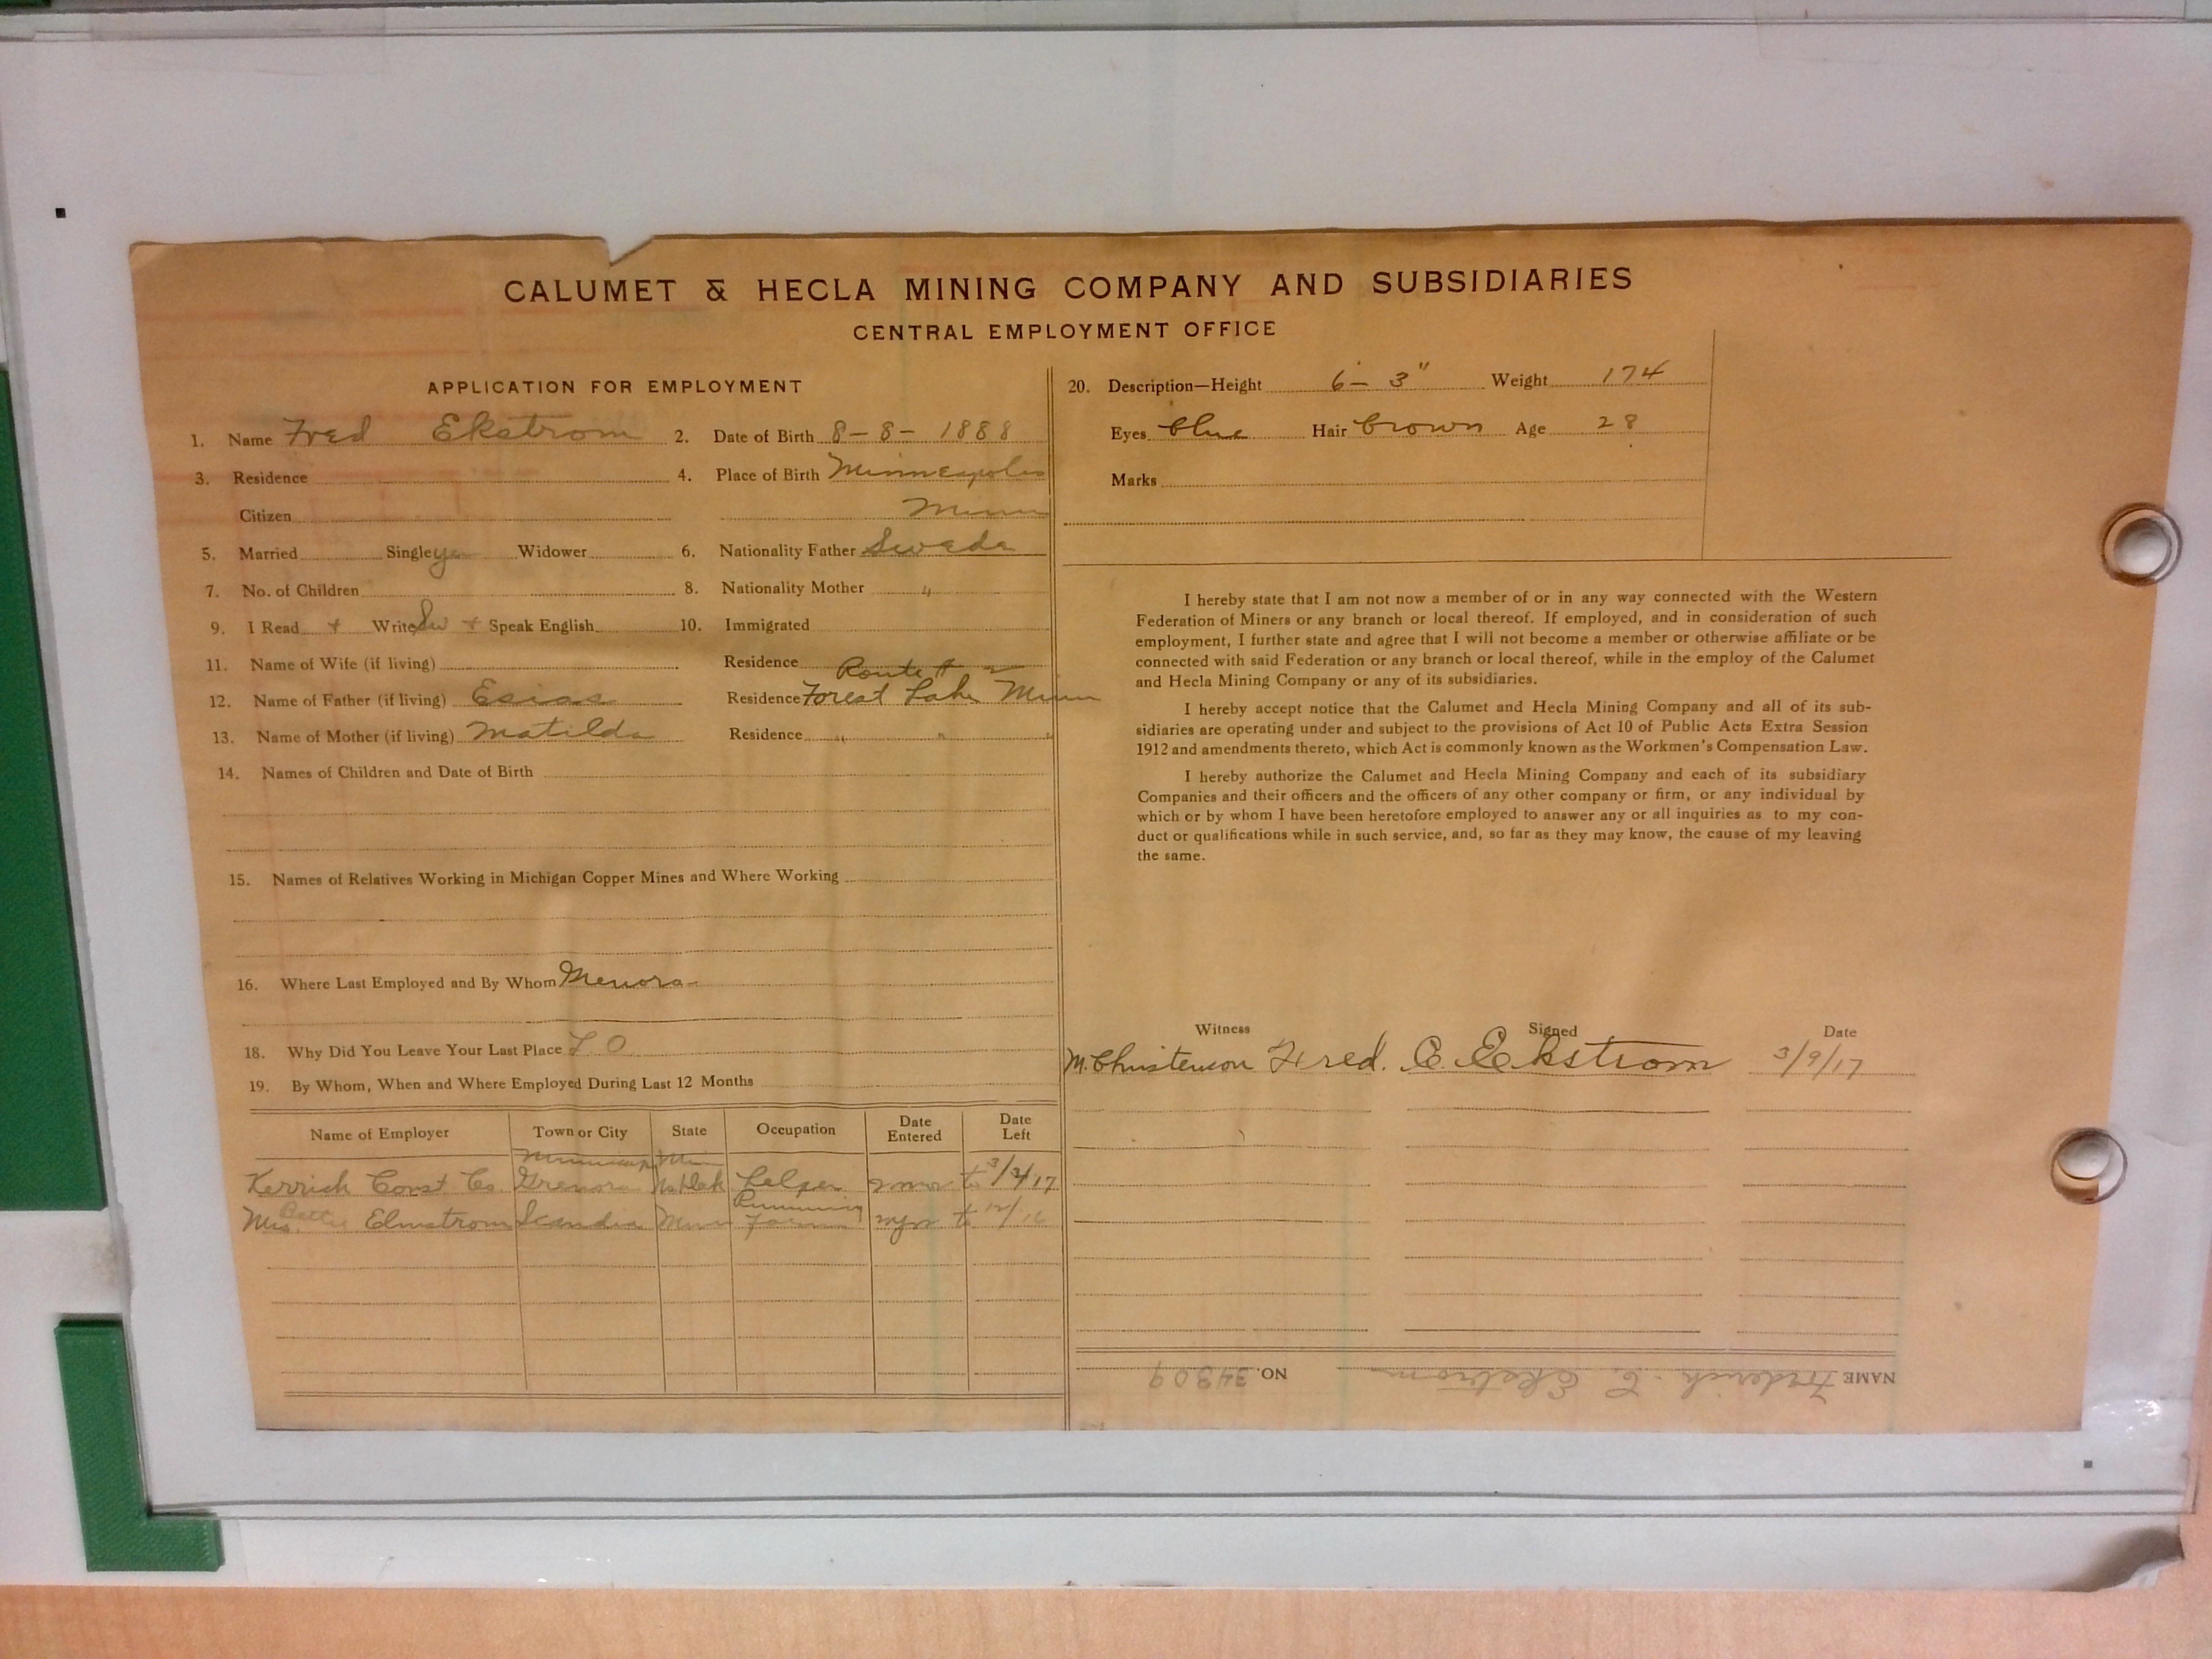 CALUMET & HECLA MINING COMPANY AND SUBSIDIARIES
CENTRAL EMPLOYMENT OFFICE
APPLICATION FOR EMPLOYMENT
1. Name Fred Ekstrom 2. Date of Birth 8-8-1888
3. Residence 4. Place of Birth Minneapolis
Citizen Minn
5. Married Single yes Widower 6. Nationality Father Swede
7. No. of Children 8. Nationality Mother "
9. I Read + Write Sw + Speak English 10. Immigrated
11. Name of Wife (if living) Residence
Route # 2
12. Name of Father (if living) Esias Residence Forest Lake Minn
13. Name of Mother (if living) Matilda Residence " " "
14. Names of Children and Date of Birth
15. Names of Relatives Working in Michigan Copper Mines and Where Working
16. Where Last Employed and By Whom
18. Why Did You Leave Your Last Place L O
19. By Whom, When and Where Employed During Last 12 Months
Name of Employer Town or City State Occupation Date Entered Date Left
Minneap Minn
Kerrich Const Co. Grenora No Dak helper 2 mos to 3/3/17
Mrs. Betty Elmstrom Scandia Minn Running Farm 2 yrs to 12/16
20. Description—Height 6'- 3" Weight 174
Eyes blue Hair brown Age 28
Marks
I hereby state that I am not now a member of or in any way connected with the Western
Federation of Miners or any branch or local thereof. If employed, and in consideration of such
employment, I further state and agree that I will not become a member or otherwise affiliate or be
connected with said Federation or any branch or local thereof, while in the employ of the Calumet
and Hecla Mining Company or any of its subsidiaries.
I hereby accept notice that the Calumet and Hecla Mining Company and all of its sub-
sidiaries are operating under and subject to the provisions of Act 10 of Public Acts Extra Session
1912 and amendments thereto, which Act is commonly known as the Workmen's Compensation Law.
I hereby authorize the Calumet and Hecla Mining Company and each of its subsidiary
Companies and their officers and the officers of any other company or firm, or any individual by
which or by whom I have been heretofore employed to answer any or all inquiries as to my con-
duct or qualifications while in such service, and, so far as they may know, the cause of my leaving
the same.
Witness Signed Date
M. Christenson Fred. C. Eckstrom 3/9/17
NAME Frederick C. Ekstrom NO. 34309